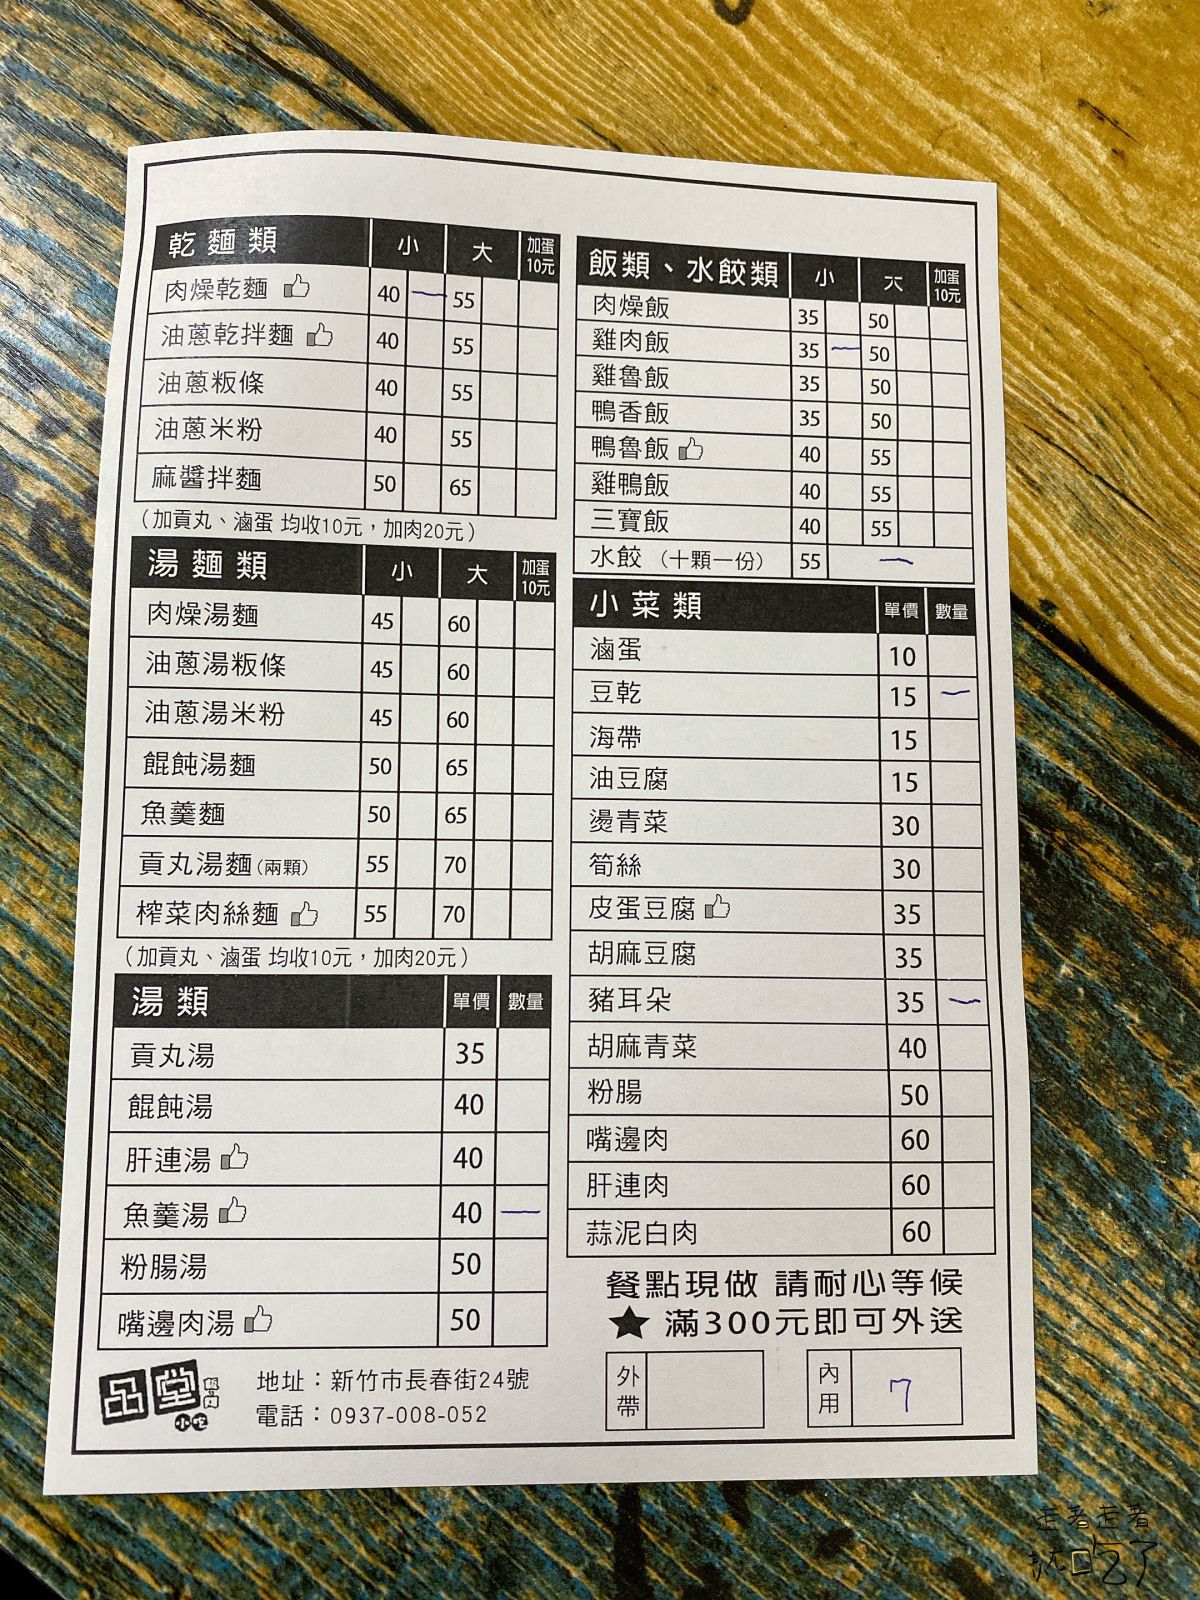 乾麵類 小 大 加蛋10元
肉燥乾麵 40 一 55
油蔥乾拌麵 40 55
油蔥粄條 40 55
油蔥米粉 40 55
麻醬拌麵 50 65
（加貢丸、滷蛋 均收10元，加肉20元）
湯麵類 小 大 加蛋10元
肉燥湯麵 45 60
油蔥湯粄條 45 60
油蔥湯米粉 45 60
餛飩湯麵 50 65
魚羹麵 50 65
貢丸湯麵(兩顆) 55 70
榨菜肉絲麵 55 70
（加貢丸、滷蛋 均收10元，加肉20元）
湯類 單價 數量
貢丸湯 35
餛飩湯 40
肝連湯 40
魚羹湯 40 一
粉腸湯 50
嘴邊肉湯 50
飯類、水餃類 小 大 加蛋10元
肉燥飯 35 50
雞肉飯 35 一 50
雞魯飯 35 50
鴨香飯 35 50
鴨魯飯 40 55
雞鴨飯 40 55
三寶飯 40 55
水餃（十顆一份） 55 一
小菜類 單價 數量
滷蛋 10
豆乾 15 一
海帶 15
油豆腐 15
燙青菜 30
筍絲 30
皮蛋豆腐 35
胡麻豆腐 35
豬耳朵 35 一
胡麻青菜 40
粉腸 50
嘴邊肉 60
肝連肉 60
蒜泥白肉 60
餐點現做 請耐心等候
★ 滿300元即可外送
品堂 小吃
地址：新竹市長春街24號
電話：0937-008-052
外帶
內用 7
走著走著
就口吃了